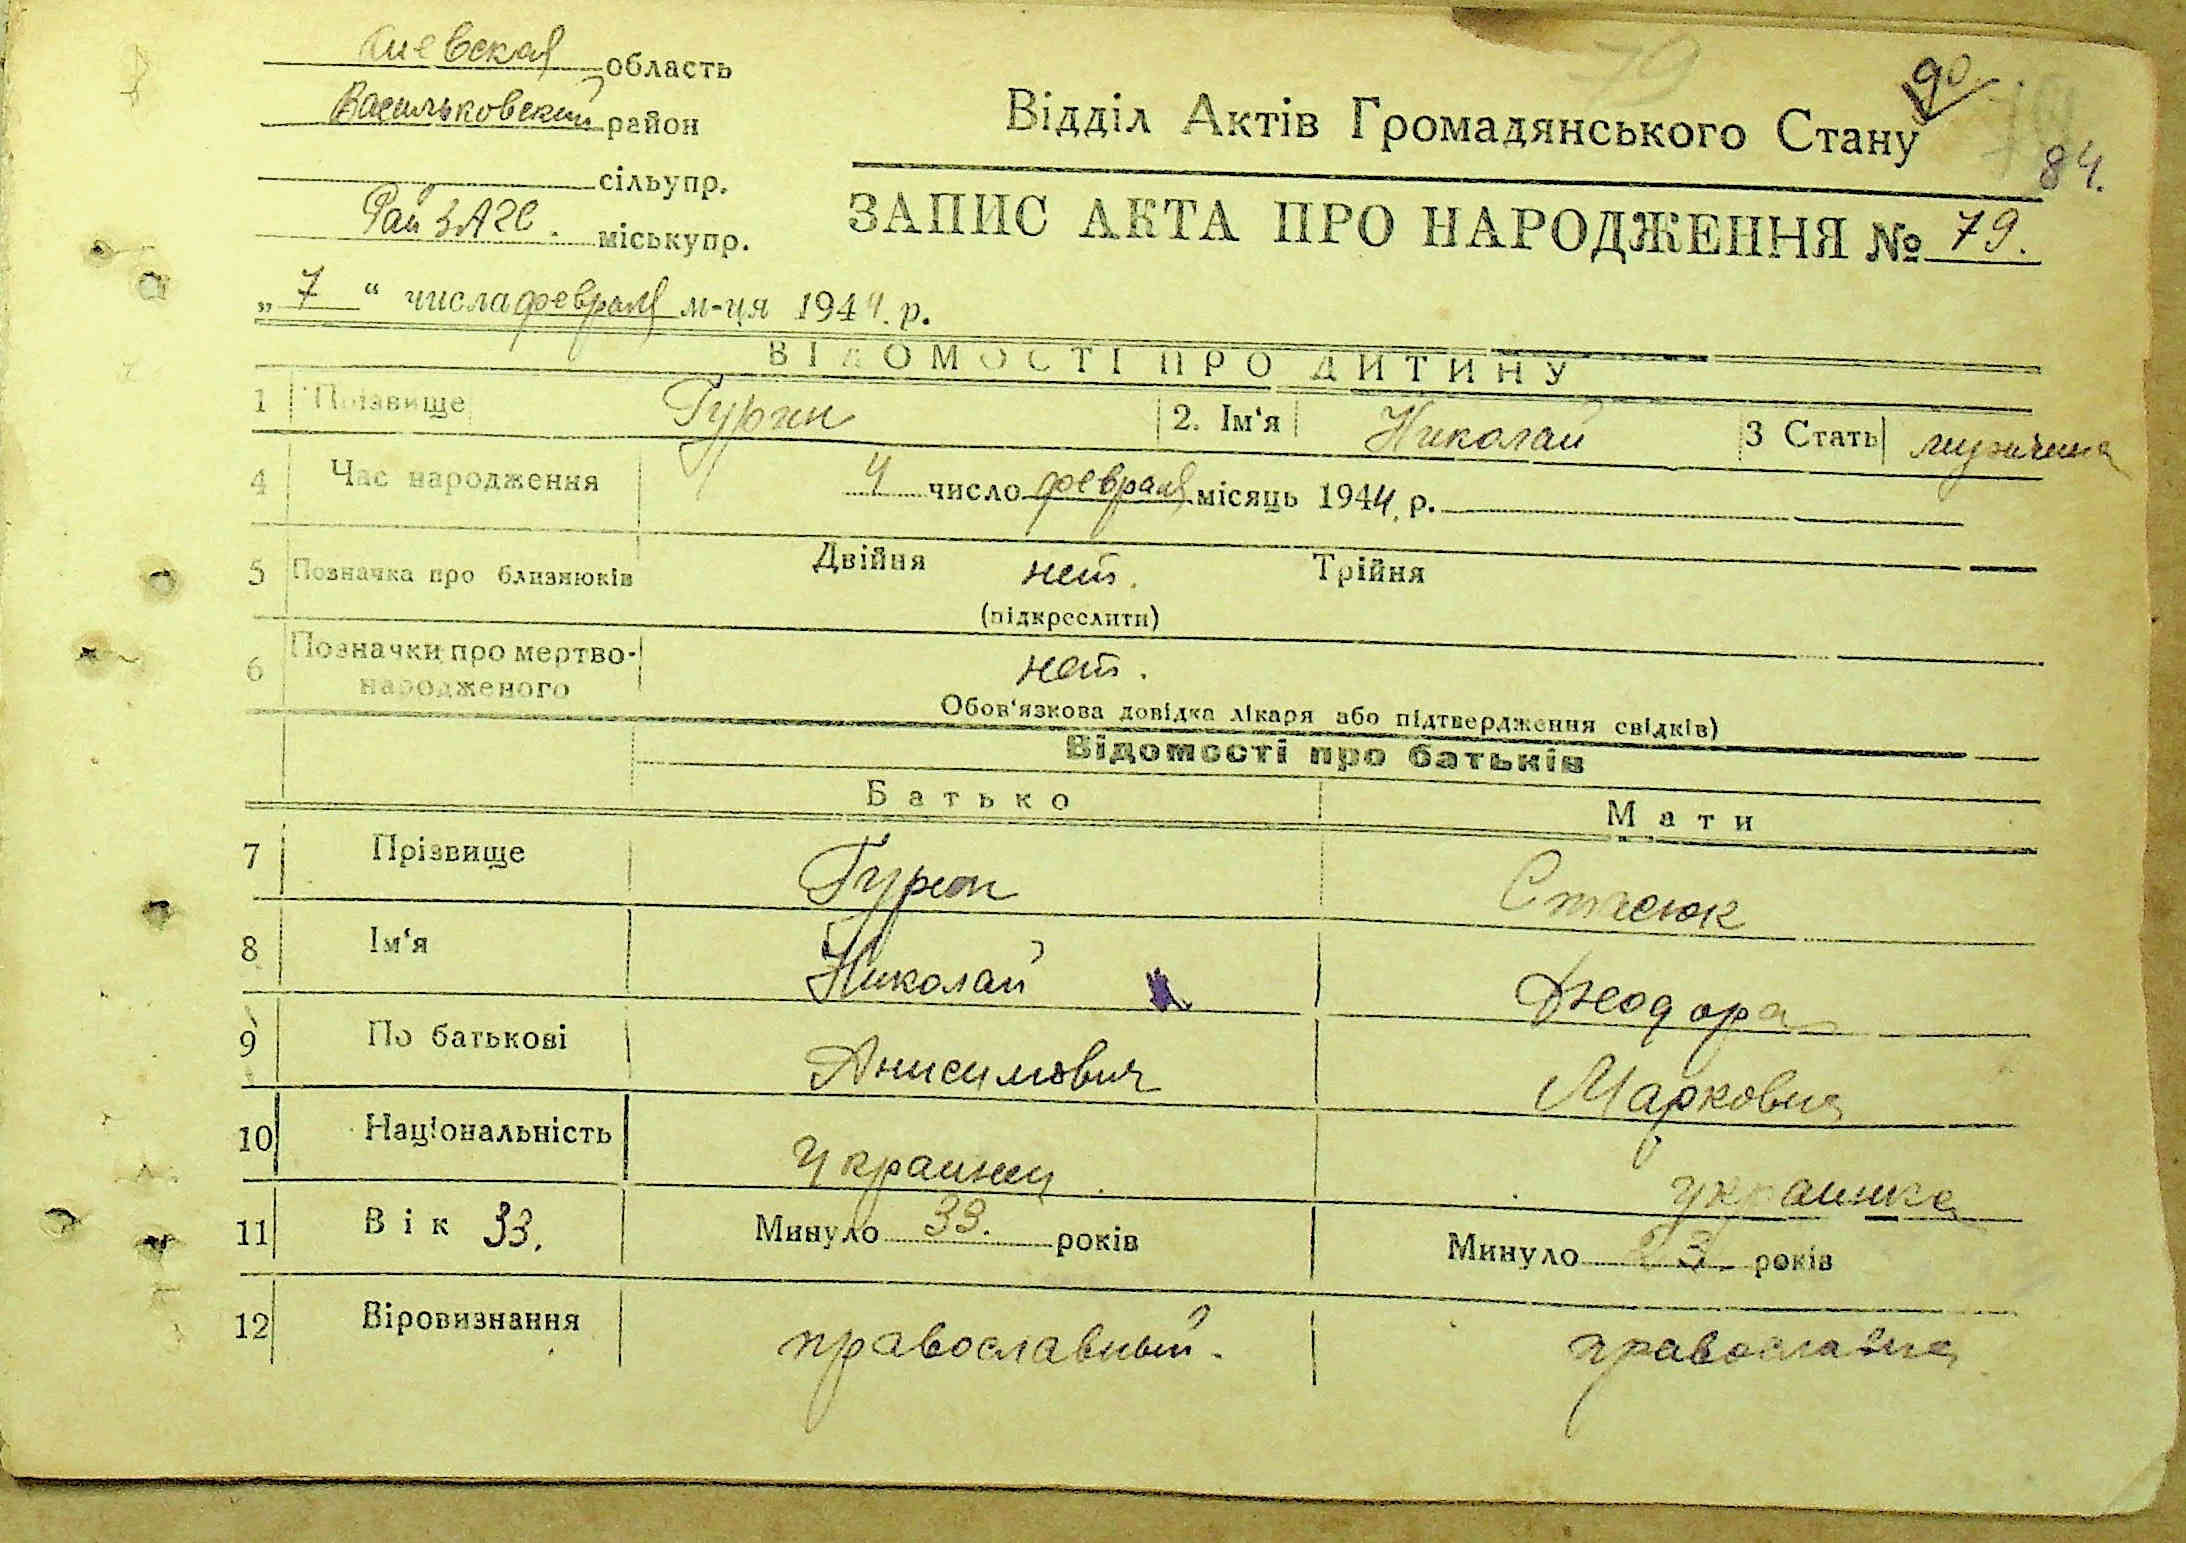 Киевская область
Васильковский район
сільупр.
Рай ЗАГС. міськупр.
„ 7 “ числа февраля м-ця 1944. р.
90
84.
Відділ Актів Громадянського Стану
ЗАПИС АКТА ПРО НАРОДЖЕННЯ № 79.
ВІДОМОСТІ ПРО ДИТИНУ
1 Прізвище Гурин 2. Ім‘я Николай 3 Стать мужчина
4 Час народження 4 число февраля місяць 1944. р.
5 Позначка про близнюків Двійня нет. Трійня
(підкреслити)
6 Позначки про мертво-
народженого нет.
Обов‘язкова довідка лікаря або підтвердження свідків)
Відомості про батьків
Батько Мати
7 Прізвище Гурин Стасюк
8 Ім‘я Николай
9 По батькові Анисимович Марковна
10 Національність украинец украинка
11 Вік 33. Минуло 33. років Минуло 23. років
12 Віровизнання православный. православна